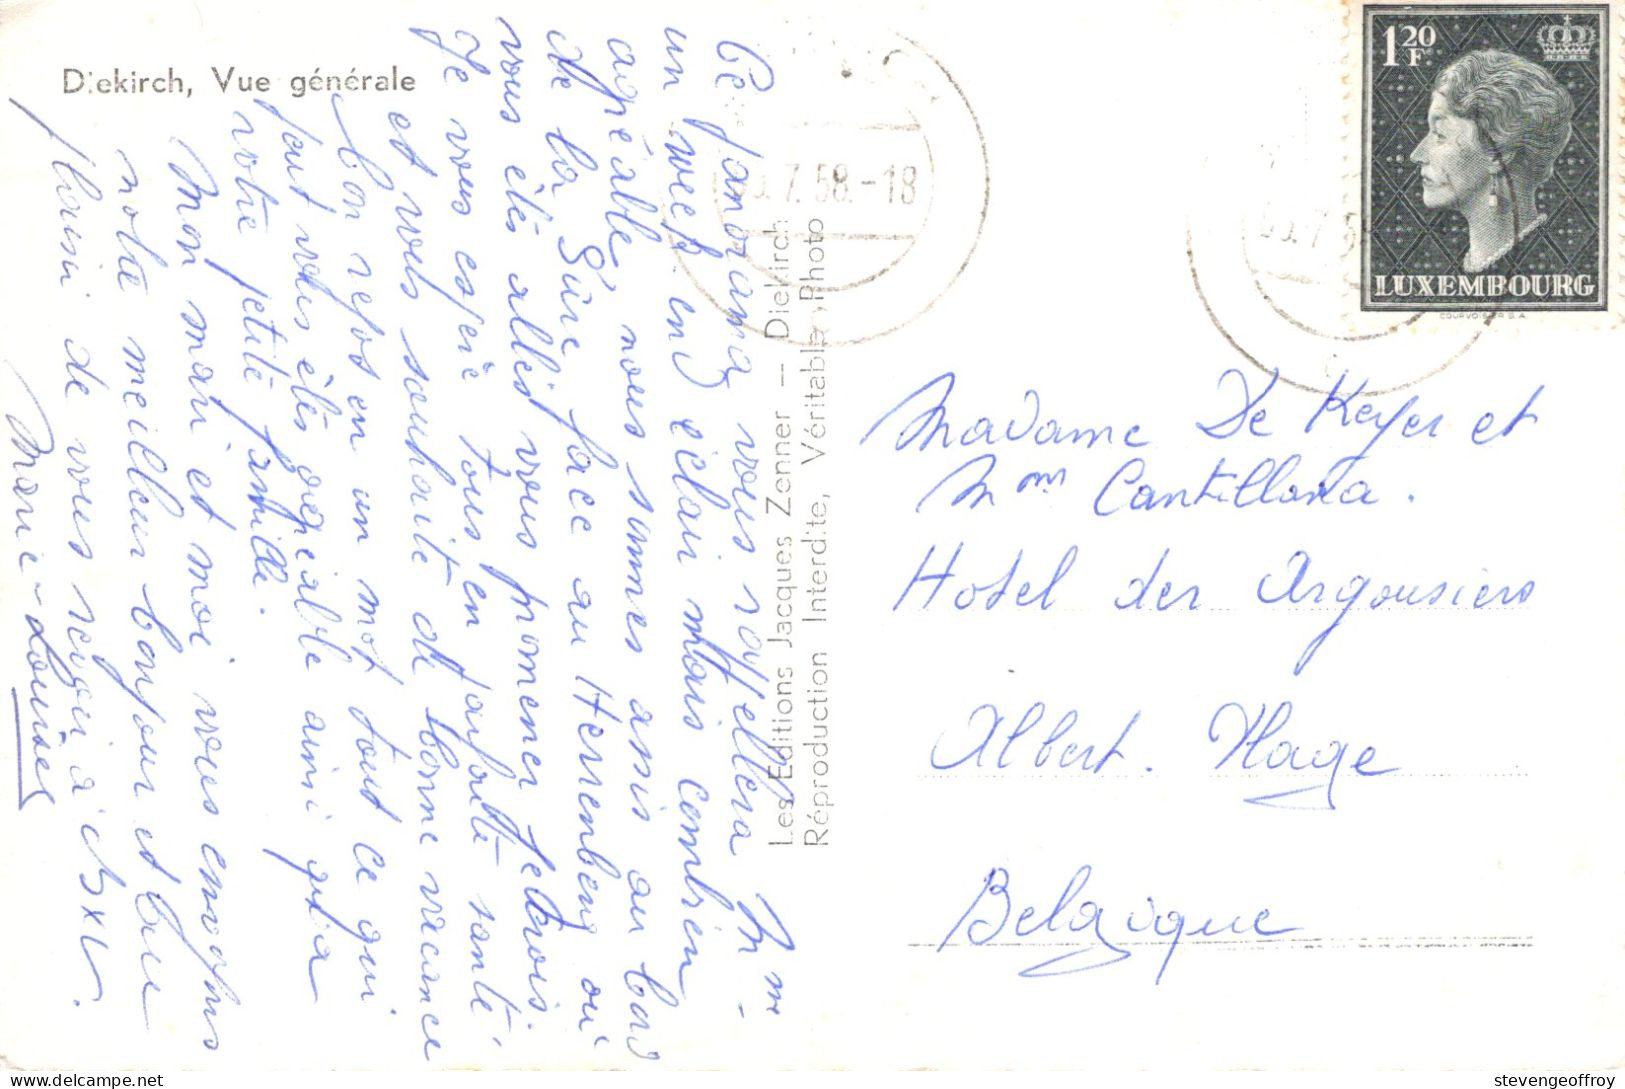 Diekirch, Vue générale
Ce panorama vous rappellera Mme
un week end éclair mais combien
agréable, nous sumnes assis au bord
de la Sûre face au Herrenberg où
vous étés allés vous promener petrois.
Je vous espère tous en parfaite santé
et vous souhaite de bonne vacance
bon repos en un mot tout ce qui
peut vous être agréable ainsi qu'a
votre petite famille.
Mon mari et moi vous envoyons
notre meilleur bonjour et au
plaisir de vous revoir à Bxl.
Marie-Louise
Les Editions Jacques Zenner — Diekirch
Réproduction Interdite, Véritable Photo
7.58.-18
1 20 F.
LUXEMBOURG
COURVOISIER S.A.
Madame De Keyer et
Mme Cantillana.
Hotel des Argousiers
Albert. Plage
Belgique
stevengeoffroy